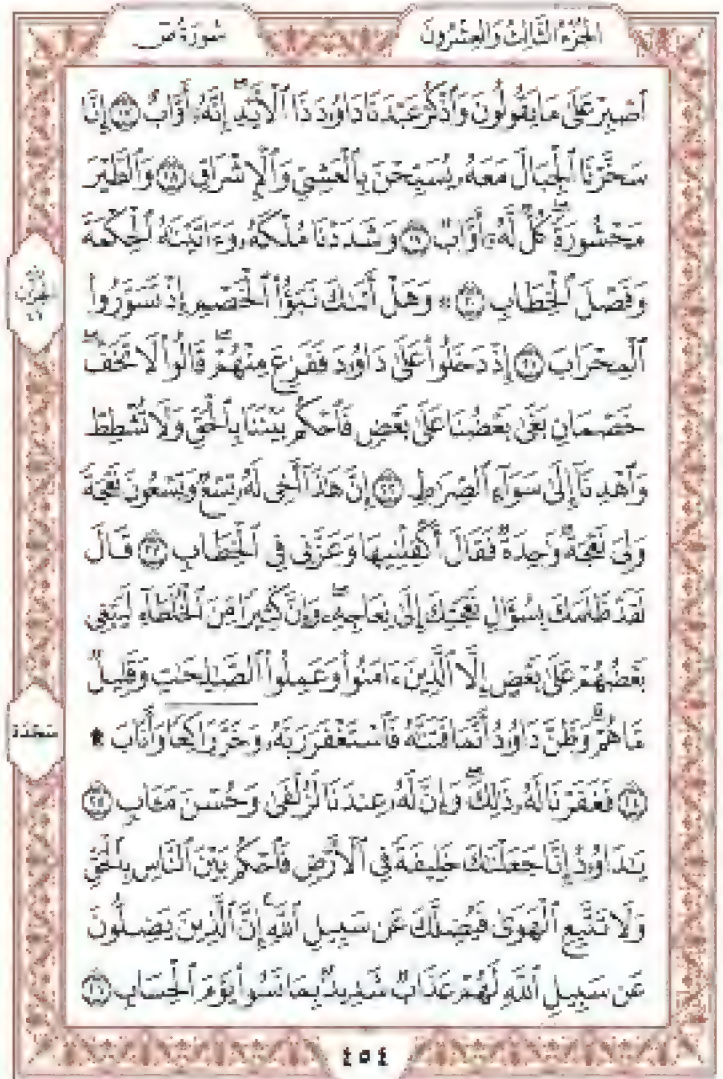 سُورَةُ صٓ
الجُزْءُ الثَّالِثُ وَالعِشْرُونَ
ٱصۡبِرۡ عَلَىٰ مَا يَقُولُونَ وَٱذۡكُرۡ عَبۡدَنَا دَاوُۥدَ ذَا ٱلۡأَيۡدِۖ إِنَّهُۥٓ أَوَّابٌ ١٧ إِنَّا
سَخَّرۡنَا ٱلۡجِبَالَ مَعَهُۥ يُسَبِّحۡنَ بِٱلۡعَشِيِّ وَٱلۡإِشۡرَاقِ ١٨ وَٱلطَّيۡرَ
مَحۡشُورَةٗۖ كُلّٞ لَّهُۥٓ أَوَّابٞ ١٩ وَشَدَدۡنَا مُلۡكَهُۥ وَءَاتَيۡنَٰهُ ٱلۡحِكۡمَةَ
وَفَصۡلَ ٱلۡخِطَابِ ٢٠ ۞ وَهَلۡ أَتَىٰكَ نَبَؤُاْ ٱلۡخَصۡمِ إِذۡ تَسَوَّرُواْ
ٱلۡمِحۡرَابَ ٢١ إِذۡ دَخَلُواْ عَلَىٰ دَاوُۥدَ فَفَزِعَ مِنۡهُمۡۖ قَالُواْ لَا تَخَفۡۖ
خَصۡمَانِ بَغَىٰ بَعۡضُنَا عَلَىٰ بَعۡضٖ فَٱحۡكُم بَيۡنَنَا بِٱلۡحَقِّ وَلَا تُشۡطِطۡ
وَٱهۡدِنَآ إِلَىٰ سَوَآءِ ٱلصِّرَٰطِ ٢٢ إِنَّ هَٰذَآ أَخِي لَهُۥ تِسۡعٞ وَتِسۡعُونَ نَعۡجَةٗ
وَلِيَ نَعۡجَةٞ وَٰحِدَةٞ فَقَالَ أَكۡفِلۡنِيهَا وَعَزَّنِي فِي ٱلۡخِطَابِ ٢٣ قَالَ
لَقَدۡ ظَلَمَكَ بِسُؤَالِ نَعۡجَتِكَ إِلَىٰ نِعَاجِهِۦۖ وَإِنَّ كَثِيرٗا مِّنَ ٱلۡخُلَطَآءِ لَيَبۡغِي
بَعۡضُهُمۡ عَلَىٰ بَعۡضٍ إِلَّا ٱلَّذِينَ ءَامَنُواْ وَعَمِلُواْ ٱلصَّٰلِحَٰتِ وَقَلِيلٞ
مَّا هُمۡۗ وَظَنَّ دَاوُۥدُ أَنَّمَا فَتَنَّٰهُ فَٱسۡتَغۡفَرَ رَبَّهُۥ وَخَرَّۤ رَاكِعٗاۤ وَأَنَابَ ۩
٢٤ فَغَفَرۡنَا لَهُۥ ذَٰلِكَۖ وَإِنَّ لَهُۥ عِندَنَا لَزُلۡفَىٰ وَحُسۡنَ مَـَٔابٖ ٢٥
يَٰدَاوُۥدُ إِنَّا جَعَلۡنَٰكَ خَلِيفَةٗ فِي ٱلۡأَرۡضِ فَٱحۡكُم بَيۡنَ ٱلنَّاسِ بِٱلۡحَقِّ
وَلَا تَتَّبِعِ ٱلۡهَوَىٰ فَيُضِلَّكَ عَن سَبِيلِ ٱللَّهِۚ إِنَّ ٱلَّذِينَ يَضِلُّونَ
عَن سَبِيلِ ٱللَّهِ لَهُمۡ عَذَابٞ شَدِيدُۢ بِمَا نَسُواْ يَوۡمَ ٱلۡحِسَابِ ٢٦
سَجْدَة
٤٥٤